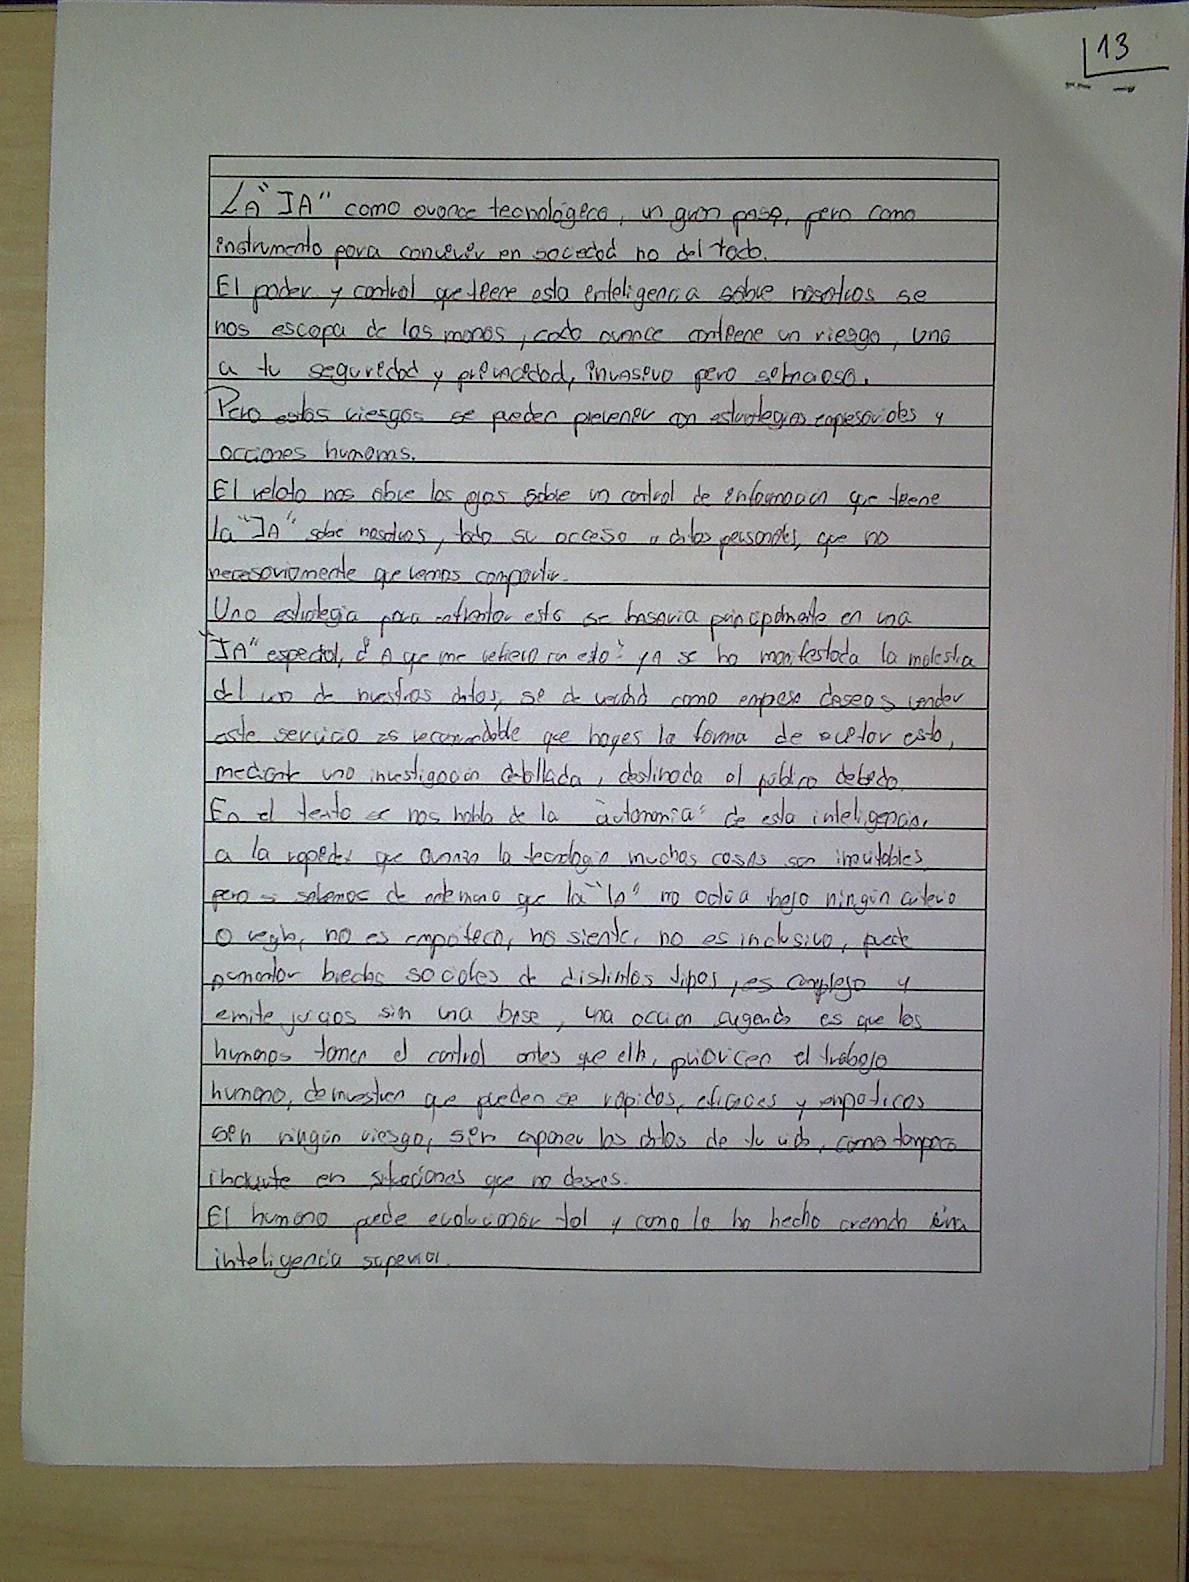 13
LA "IA" como avance tecnológico, un gran paso, pero como
instrumento para convivir en sociedad no del todo.
El poder y control que tiene esta inteligencia sobre nosotros se
nos escapa de las manos, cada avance contiene un riesgo, uno
a tu seguridad y privacidad, invasivo pero
Pero estos riesgos se pueden prevenir con estrategias empresariales y
acciones humanas.
El relato nos abre los ojos sobre un control de información que tiene
la "IA" sobre nosotros, todo su acceso a datos personales, que no
necesariamente queremos compartir.
Una estrategia para enfrentar esto se basaria principalmente en una
"IA" especial, ¿A que me refiero con esto? YA se ha manifestado la molestia
del uso de nuestros datos, se de verdad como empresa deseas vender
este servicio es recomendable que hages la forma de evitar esto,
mediante una investigación detallada, destinada al público debido.
En el texto se nos habla de la "autonomia" de esta inteligencia,
a la rapedez que avanza la tecnologia muchas cosas son inevitables,
pero si sabemos de antemano que la "IA" no actúa bajo ningún criterio
o regla, no es empatica, no siente, no es inclusivo, puede
aumentar brechas sociales de distintos tipos, es complejo y
emite juicios sin una base, una accion sugerida es que los
humanos tomen el control antes que ella, prioricen el trabajo
humano, demuestren que pueden ser rapidos, eficaces y empaticos
sen ningún riesgo, sen exponer los datos de tu vida, como tampoco
incluirte en situaciones que no desees.
El humano puede evolucionar tal y como lo ha hecho creando una
inteligencia superior.